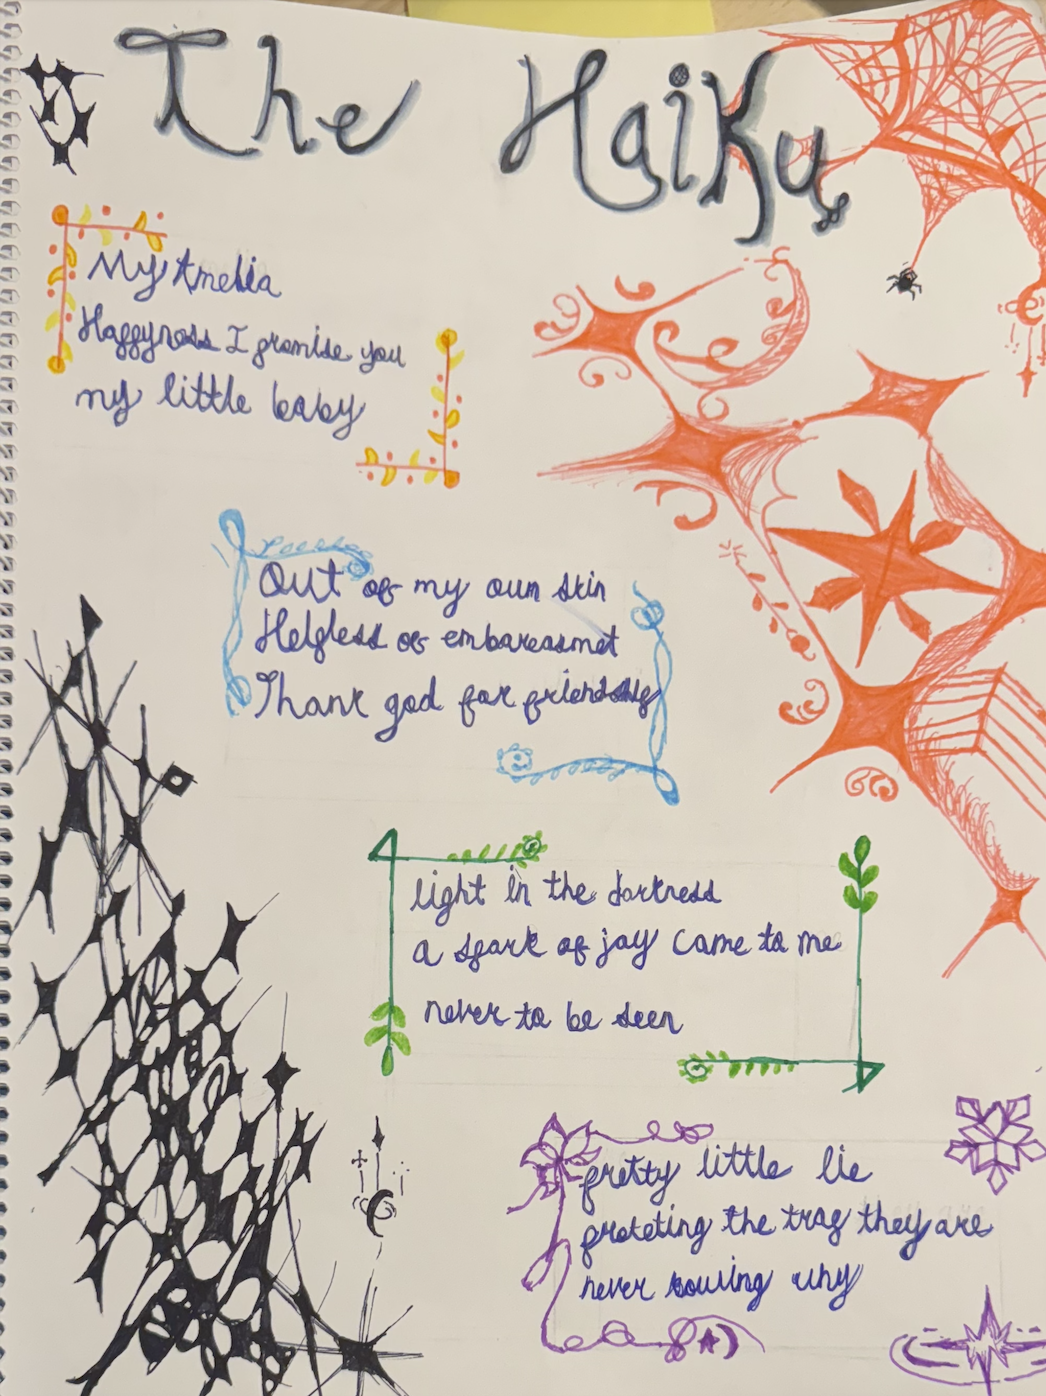 The Haiku
My Amelia
Happyness I promise you
my little baby
Out of my own skin
Helpless of embareasmet
Thank god for friendship
light in the darkness
a spark of joy came to me
never to be seen
pretty little lie
proteting the trap they are
never souwing why